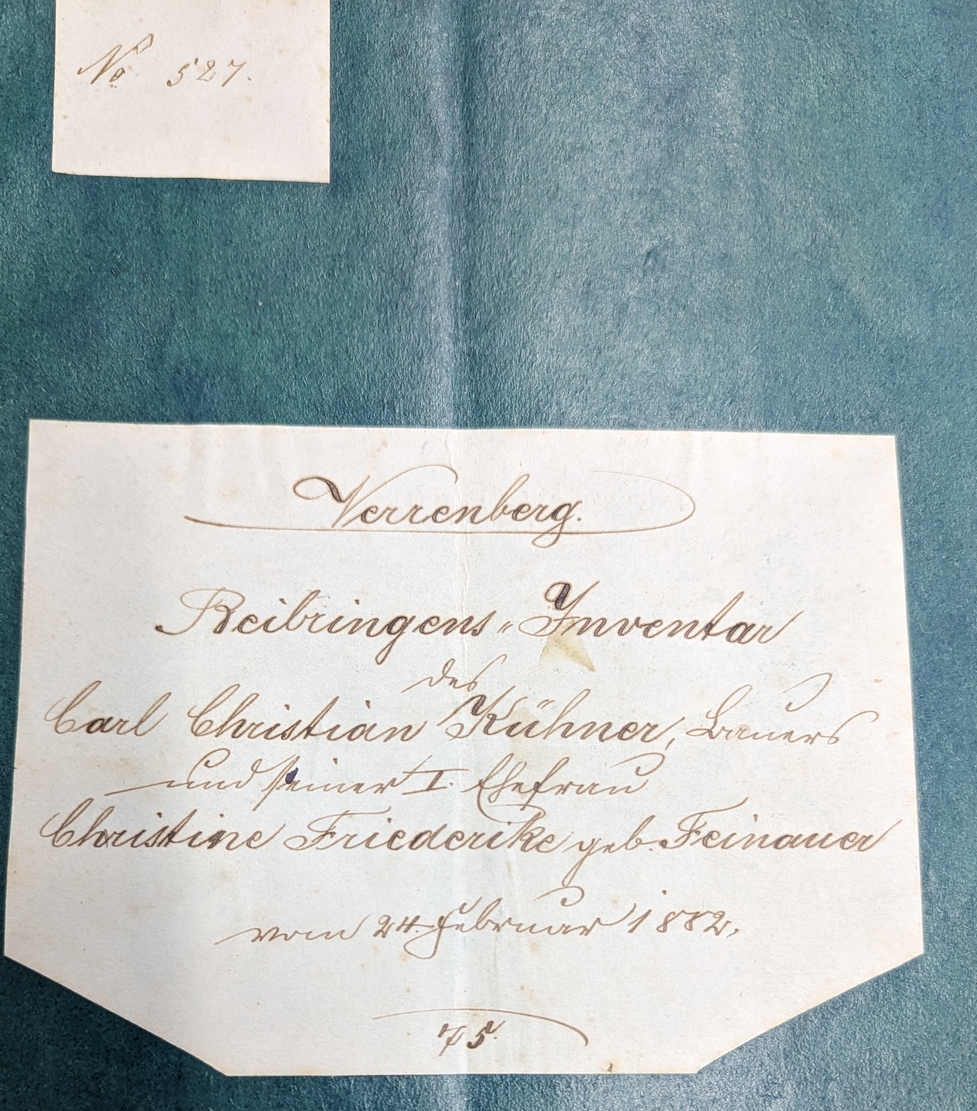 No 527.
Verrenberg.
Beibringens-Inventar
des
Carl Christian Kühner, Bauers
und seiner I. Ehefrau
Christine Friederike geb. Feinauer
vom 24. Februar 1882.
75.